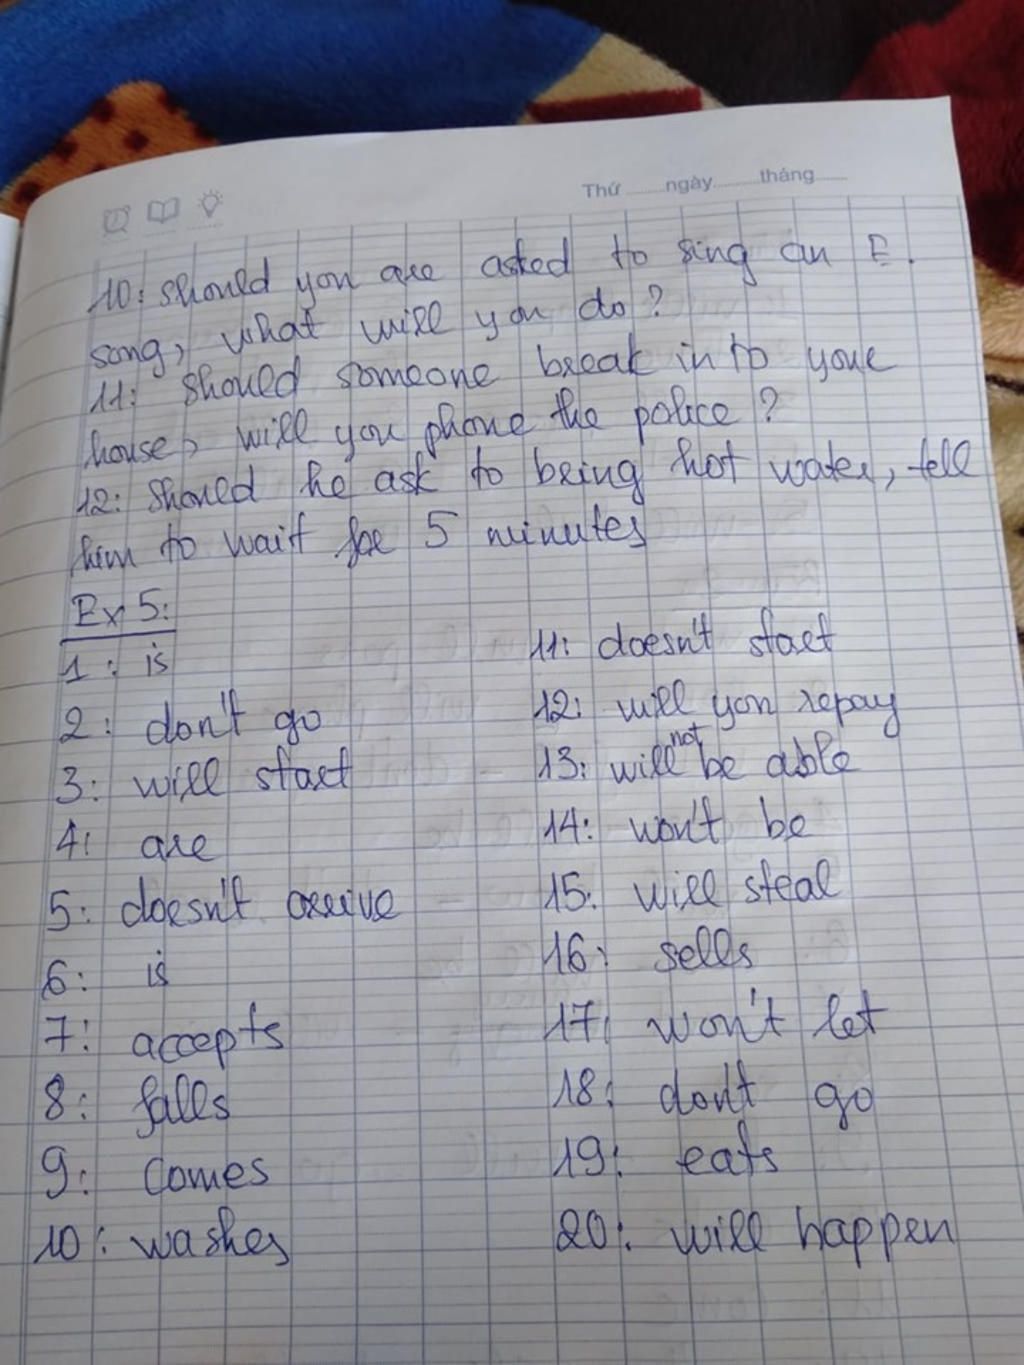 Thứ ........ngày...........tháng.......
10: should you are asked to sing an E.
song, what will you do?
11: should someone break in to your
house, will you phone the police?
12: should he ask to being hot water, tell
him to wait for 5 minutes
Ex 5:
1: is
2: don't go
3: will start
4: are
5: doesn't arrive
6: is
7: accepts
8: falls
9: comes
10: washes
11: doesn't start
12: will you repay
13: will not be able
14: won't be
15: will steal
16: sells
17: won't let
18: don't go
19: eats
20: will happen